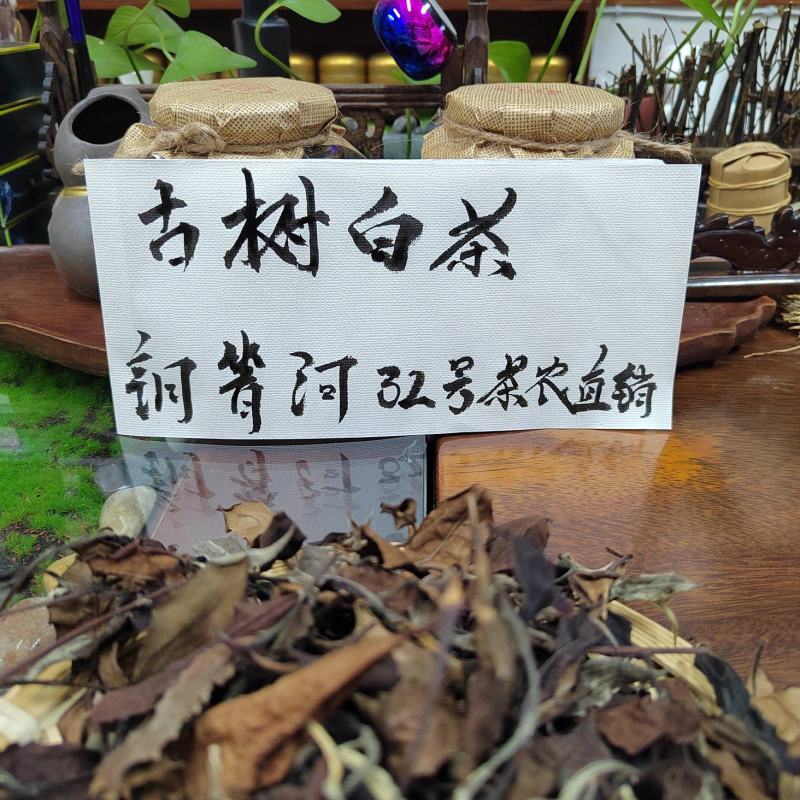 古树白茶
铜箐河32号茶农直销